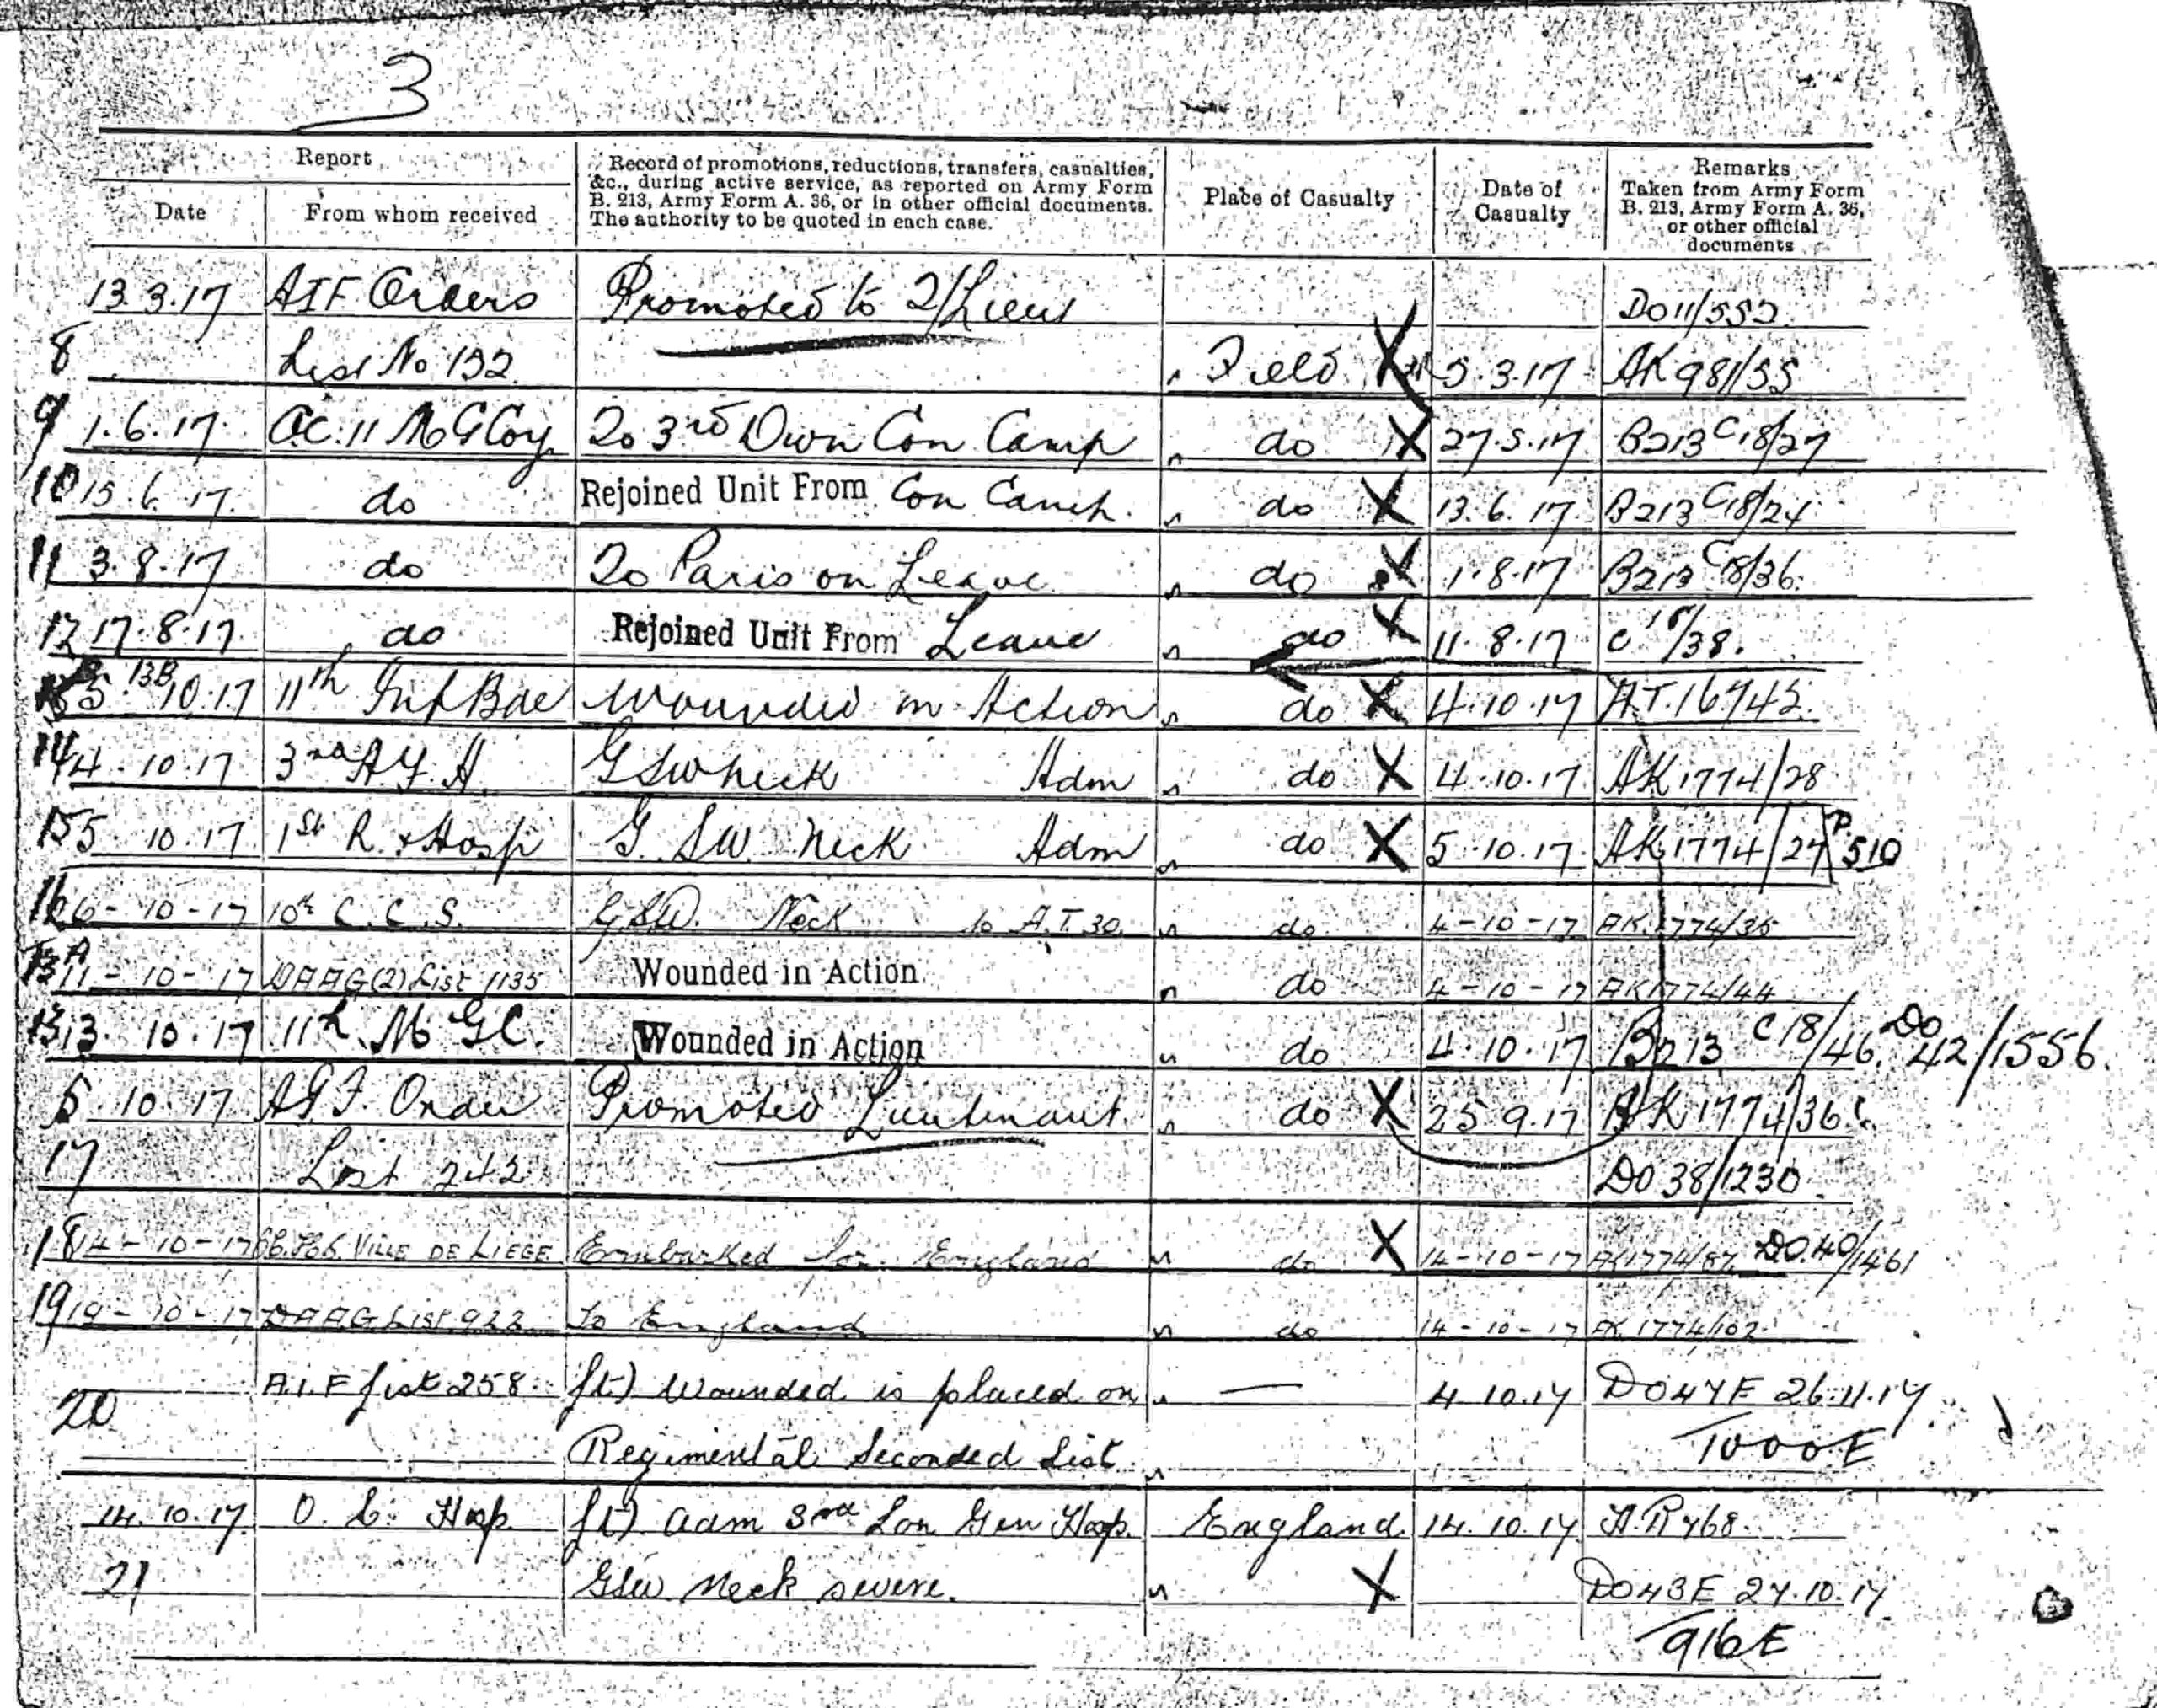 3
Report
Date
From whom received
Record of promotions, reductions, transfers, casualties,
&c., during active service, as reported on Army Form
B. 213, Army Form A. 36, or in other official documents.
The authority to be quoted in each case.
Place of Casualty
Date of
Casualty
Remarks
Taken from Army Form
B. 213, Army Form A. 36,
or other official
documents
13.3.17 AIF Orders Promoted to 2/Lieut DO11/552
8 List No 132 Field X 5.3.17 AK981/55
9 1.6.17 OC.11 MG Coy To 3rd Divn Con Camp do X 27.5.17 B213 C18/27
10 15.6.17 do Rejoined Unit From Con Camp. do X 13.6.17 B213 C18/24
11 3.8.17 do To Paris on Leave do X 1.8.17 B213 C18/36.
12 17.8.17 do Rejoined Unit From Leave do X 11.8.17 C18/38.
13B 5.10.17 11th Inf Bde Wounded in Action do X 4.10.17 AT.16742.
14 4.10.17 3rd A.F.A. GSW neck Adm do X 4.10.17 AK1774/28
15 5.10.17 1st R. & Hosp G.SW. neck Adm do X 5.10.17 AK1774/27 P 510
16 6-10-17 10th C.C.S. GSW. Neck to A.T.30. do 4-10-17 AK.1774/35
13A 11-10-17 DAAG(2) List 1135 Wounded in Action do 4-10-17 AK1774/44
13 13.10.17 11th M G C. Wounded in Action do 4.10.17 B213 C18/46. DO 42/1556.
5.10.17 A.I.F. Order Promoted Lieutenant do X 25.9.17 AK1774/36
17 List 242 DO 38/1230
18 14-10-17 VILLE DE LIEGE Embarked for England do X 14-10-17 AK1774/87 DO.40/1461
19 19-10-17 DAAG List 922 To England do 14-10-17 AK.1774/102
A.I.F List 258. (Lt) Wounded is placed on — 4.10.17 DO47E 26.11.17
20 Regimental Seconded List 1000E
14.10.17 O. C. Hosp. (Lt) adm 3rd Lon Gen Hosp. England 14.10.17 H.R768.
21 GSW Neck severe. X DO43E 27.10.17
916E